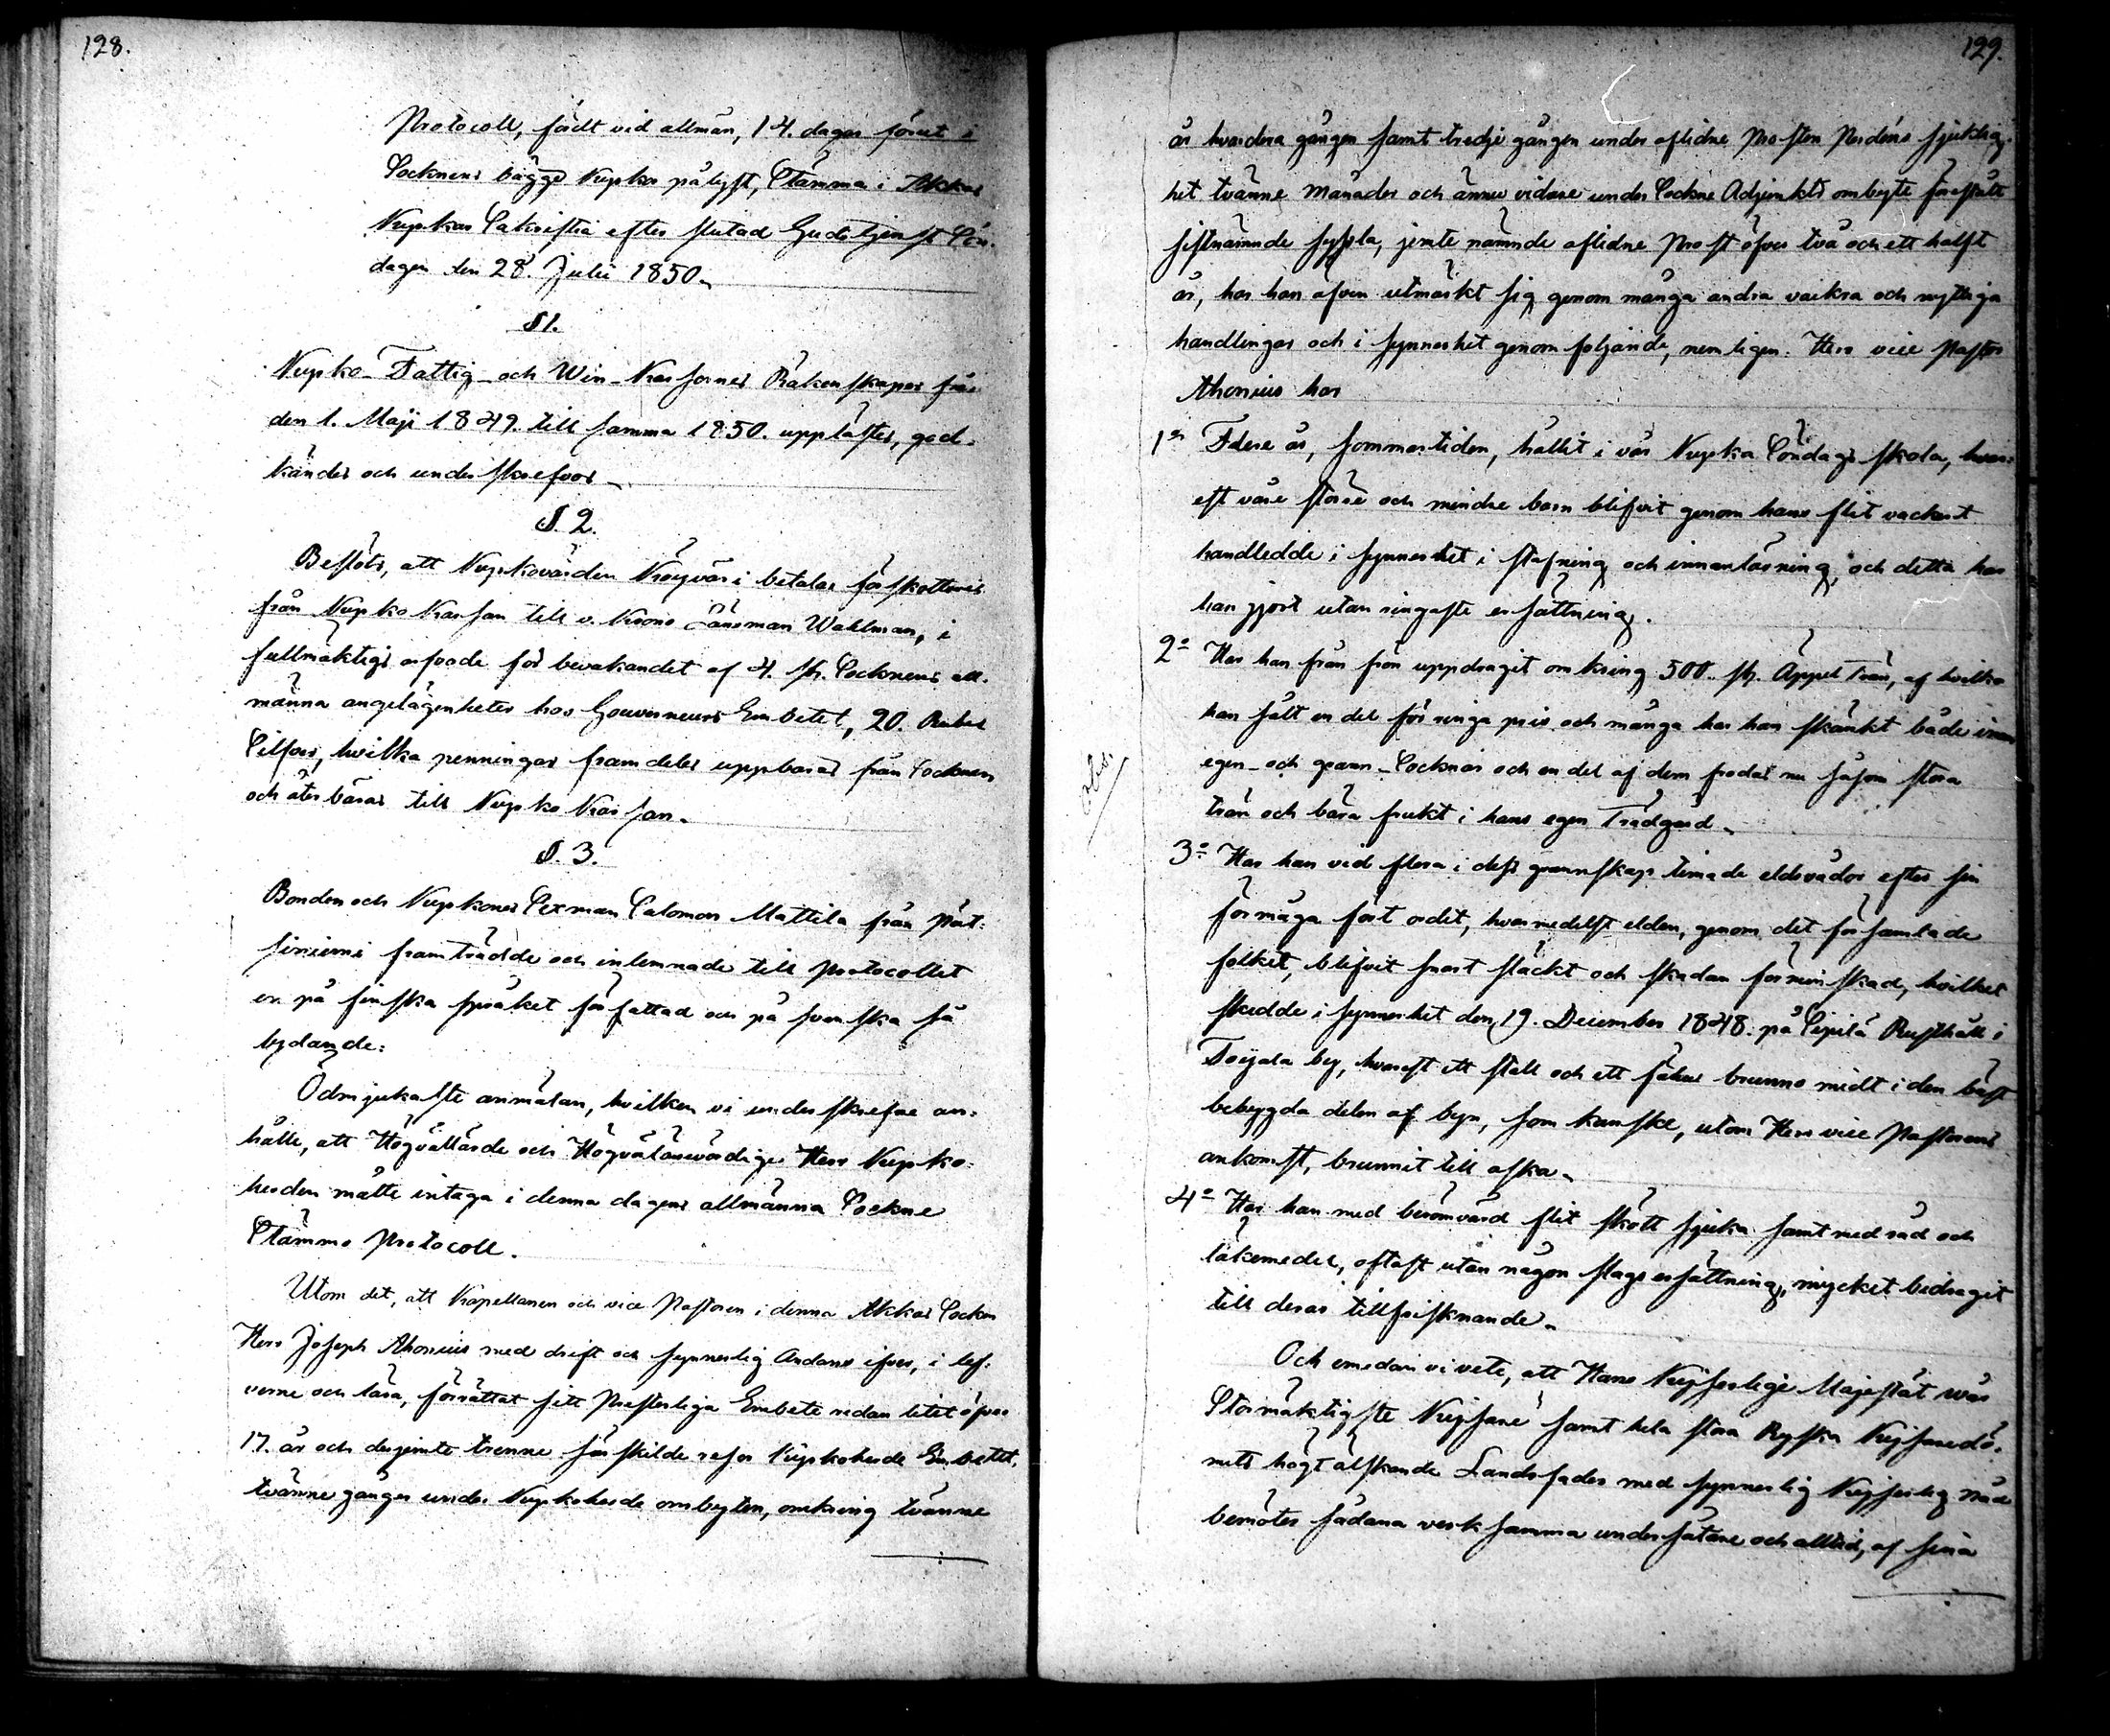 128.
Protocoll, fördt vid allmän, 14. dagar förut i
Socknens bägge Kyrkor pålyst, Stämma i Akkas
Kyrkas Sakristia efter slutad Gudstjenst Sön-
dagen den 28. Julii 1850.
§ 1.
Kyrko- Fattig- och Win-Kassornes Räkenskaper från
den 1. Maji 1849. till samma 1850. upplästes, god-
kändes och underskrefvos.
§. 2.
Beslöts, att Kyrkovärden Kröyväri betalar förskottsvis
från Kyrko Kassan till v. Krono Länsman Wahlman, i
fullmäktigs arfvode för bevakandet af 4. st. Socknens all-
männa angelägenheter hos Gouverneurs Embetet, 20. Rubel
Silfver, hvilka penningar framdeles uppbäras från Socknen
och återbäras till Kyrko Kassan.
§. 3.
Bonden och Kyrkones Sexman Salomon Mattila från
framträdde och inlemnade till Protocollet
en på finska språket författad och på svenska så
lydande:
Ödmjukaste anmälan, hvilken vi underskrefne an-
hålle, att Högvällärde och Högvälärevördige Herr Kyrko-
herden måtte intaga i denna dagens allmänna Sockne
Stämmo Protocoll.
Utom det, att Kapellanen och vice Pastoren i denna Akkas Socken
Herr Joseph Ahonius med drift och synnerlig Andans ifver, i lef-
verne och lära, förrättat sitt Presterliga Embete redan litet öfver
17. år och derjemte trenne särskilde resor Kyrkoherde Embetet,
tvänne gånger under Kyrkoherde ombyten, omkring tvänne
129.
år hvardera gången samt tredje gången under aflidne Prosten Nordéns sjuklig-
het tvänne månader och ännu vidare under Sockne Adjunkts ombyte förestått
sistnämnde syssla, jemte nämnde aflidne Prost öfver två och ett halft
år, har han äfven utmärkt sig genom många andra vackra och nyttiga
handlingar och i synnerhet genom följande, nemligen: Herr vice Pastor
Ahonius har
1:o Flere år, sommartiden, hållit i vår Kyrka Söndags skola, hvar-
est våre större och mindre barn blifvit genom hans flit vackert
handledde i synnerhet i stafning och innanläsning, och detta har
han gjort utan ringaste ersättning.
2:o Har han från frön uppdragit omkring 500. st. Äppel Trän, af hvilka
han sålt en del för ringa pris och många har han skänkt både inom
egen- och grann-Socknar och en del af dem frodas nu såsom stora
trän och bära frukt i hans egen Trädgård.
3:o Har han vid flera i dess grannskap timade eldsvådor efter sin
förmåga fört ordet, hvarmedelst elden, genom det församlade
folket, blifvit snart släckt och skadan förminskad, hvilket
skedde i synnerhet den 19. December 1848. på Sipilä Rusthåll i
Toijala by, hvarest ett stall och ett fähus brunno midt i den bäst
bebygda delen af byn, som kanske, utom Herr vice Pastorens
ankomst, brunnit till aska.
4:o Har han med berömvärd flit skött sjuka samt med råd och
läkemedel, oftast utan någon slags ersättning, mycket bidragit
till deras tillfrisknande.
Och emedan vi vete, att Hans Kejserlige Majestät wår
Stormäktigste Kejsare samt hela stora Ryska Kejsaredö-
mets högt älskande Landsfader med synnerlig Kejserlig nåd
bemöter sådana verksamma undersåtare och alltid, af sina